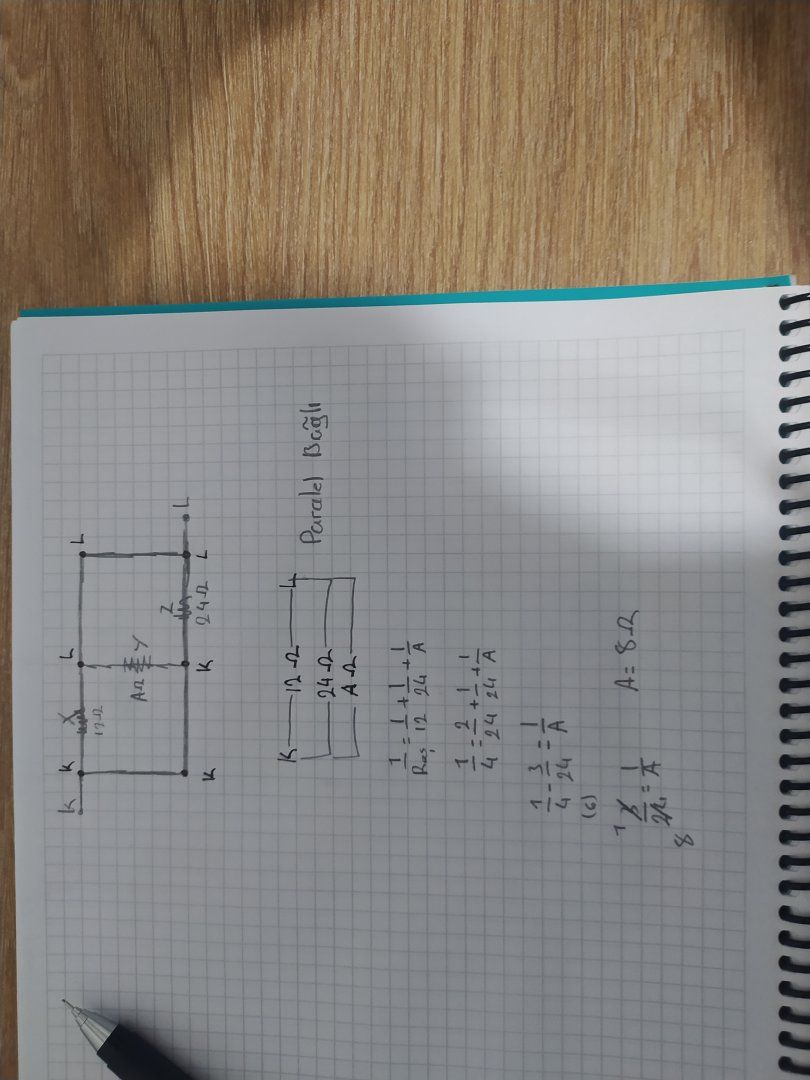 K K L L
X
12Ω
AΩ Y
Z
24Ω
K K L L
K 12Ω L Paralel Bağlı
24Ω
AΩ
1/Reş = 1/12 + 1/24 + 1/A
1/4 = 2/24 + 1/24 + 1/A
1/4 - 3/24 = 1/A
(6)
1 3/24 = 1/A A = 8Ω
8